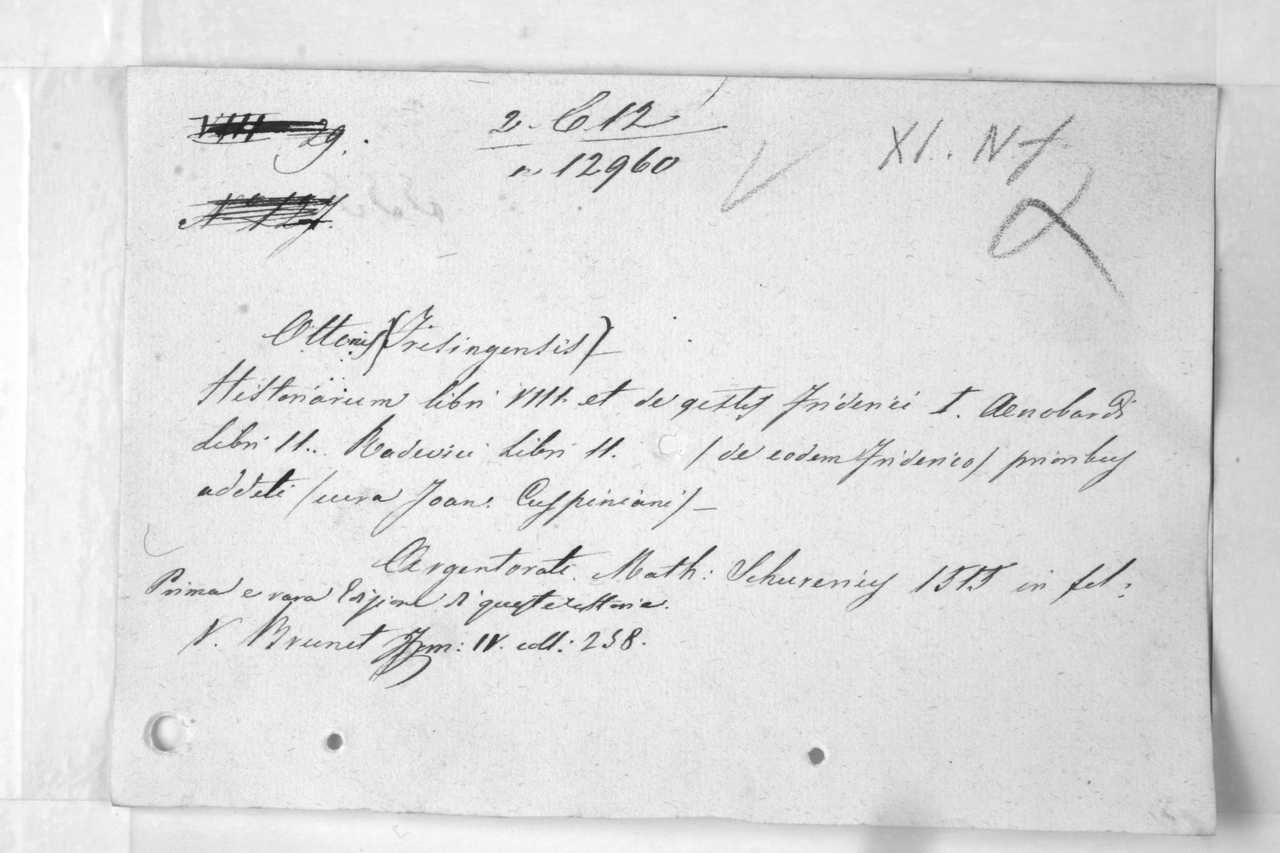 VIII 29.
2. C 12
n. 12960
XI. N f
N° 127.
Ottonis (Frisingensis) —
Historiarum libri VIII. et de gestis Friderici I. Aenobardi
Libri II. Radevici Libri II. / de eodem Friderico / prioribus
additi / cura Joan: Cuspiniani / —
Argentorati. Math: Schurerius 1515 in fol:
Prima e rara Edizione di queste Istorie.
V. Brunet Tom: IV. coll: 258.